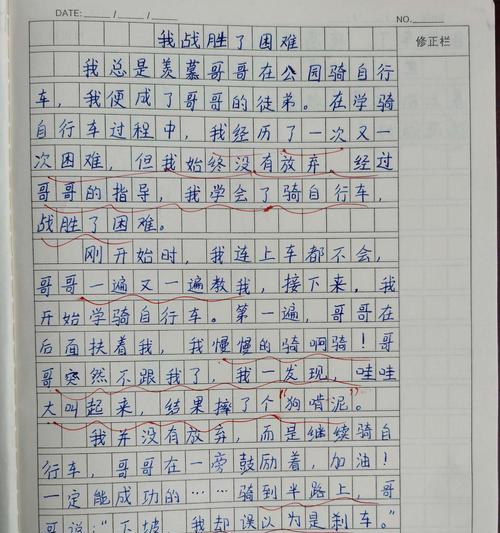 DATE: / / NO.
我战胜了困难
修正栏
我总是羡慕哥哥在公园骑自行
车，我便成了哥哥的徒弟。在学骑
自行车过程中，我经历了一次又一
次困难，但我始终没有放弃，经过
哥哥的指导，我学会了骑自行车，
战胜了困难。
刚开始时，我连上车都不会，
哥哥一遍又一遍教我，接下来，我
开始学骑自行车。第一遍，哥哥在
后面扶着我，我慢慢的骑啊骑！哥
哥突然不跟我了，我一发现，哇哇
大叫起来，结果摔了个“狗啃泥”。
我并没有放弃，而是继续骑自
行车，哥哥在一旁鼓励着，加油！
一定能成功的……骑到半路上，哥
哥说：“下坡，我却误以为是刹车。”